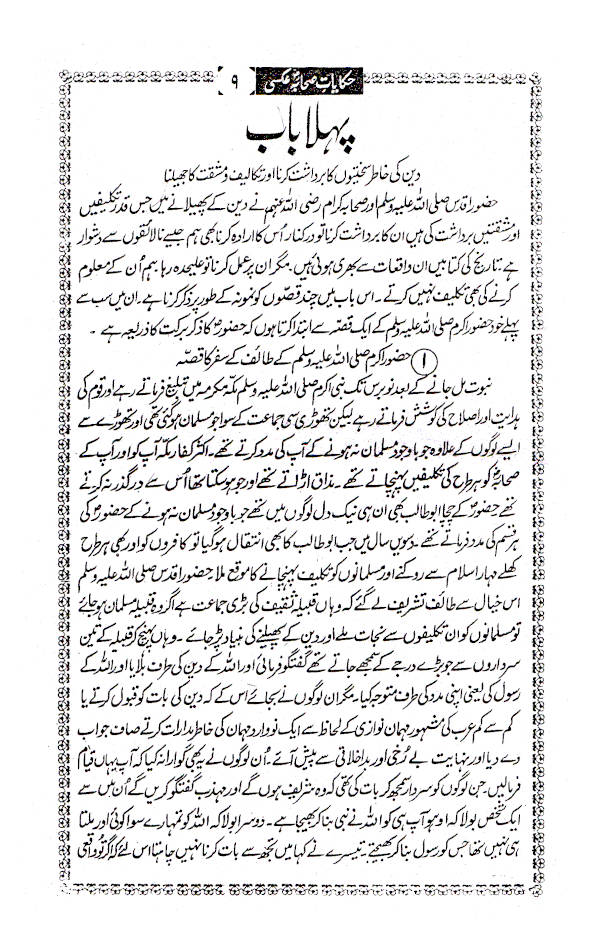 حکایاتِ صحابہؓ عکسی ۹
پہلا باب
دین کی خاطر سختیوں کا برداشت کرنا اور تکالیف و مشقت کا جھیلنا
حضورِ اقدس صلی اللہ علیہ وسلم اور صحابہ کرام رضی اللہ عنہم نے دین کے پھیلانے میں جس قدر تکلیفیں
اور مشقتیں برداشت کی ہیں ان کا برداشت کرنا تو درکنار اُس کا ارادہ کرنا بھی ہم جیسے نالائقوں سے دشوار
ہے۔ تاریخ کی کتابیں ان واقعات سے بھری ہوئی ہیں۔ مگر ان پر عمل کرنا تو علیحدہ رہا ہم اُن کے معلوم
کرنے کی بھی تکلیف نہیں کرتے۔ اس باب میں چند قصّوں کو نمونہ کے طور پر ذکر کرنا ہے۔ ان میں سب سے
پہلے خود حضور اکرم صلی اللہ علیہ وسلم کے ایک قصّہ سے ابتدا کرتا ہوں کہ حضورؐ کا ذکر برکت کا ذریعہ ہے۔
۱ حضور اکرم صلی اللہ علیہ وسلم کے طائف کے سفر کا قصّہ
نبوت مل جانے کے بعد نو برس تک نبی اکرم صلی اللہ علیہ وسلم مکہ مکرمہ میں تبلیغ فرماتے رہے اور قوم کی
ہدایت اور اصلاح کی کوشش فرماتے رہے لیکن تھوڑی سی جماعت کے سوا جو مسلمان ہو گئی تھی اور تھوڑے سے
ایسے لوگوں کے علاوہ جو باوجود مسلمان نہ ہونے کے آپ کی مدد کرتے تھے۔ اکثر کفارِ مکہ آپ کو اور آپ کے
صحابہؓ کو ہر طرح کی تکلیفیں پہنچاتے تھے۔ مذاق اڑاتے تھے اور جو ہو سکتا تھا اُس سے درگذر نہ کرتے
تھے حضورؐ کے چچا ابوطالب بھی ان ہی نیک دل لوگوں میں تھے جو باوجود مسلمان نہ ہونے کے حضورؐ کی
ہر قسم کی مدد فرماتے تھے۔ دسویں سال میں جب ابوطالب کا بھی انتقال ہو گیا تو کافروں کو اور بھی ہر طرح
کھلے مہار اسلام سے روکنے اور مسلمانوں کو تکلیف پہنچانے کا موقع ملا حضورِ اقدس صلی اللہ علیہ وسلم
اس خیال سے طائف تشریف لے گئے کہ وہاں قبیلہ ثقیف کی بڑی جماعت ہے اگر وہ قبیلہ مسلمان ہو جائے
تو مسلمانوں کو ان تکلیفوں سے نجات ملے اور دین کے پھیلنے کی بنیاد پڑ جائے۔ وہاں پہنچ کر قبیلہ کے تین
سرداروں سے جو بڑے درجے کے سمجھے جاتے تھے گفتگو فرمائی اور اللہ کے دین کی طرف بلایا اور اللہ کے
رسول کی یعنی اپنی مدد کی طرف متوجہ کیا۔ مگر ان لوگوں نے بجائے اس کے کہ دین کی بات کو قبول کرتے یا
کم سے کم عرب کی مشہور مہمان نوازی کے لحاظ سے ایک نووارد مہمان کی خاطر مدارات کرتے صاف جواب
دے دیا اور نہایت بے رُخی اور بداخلاقی سے پیش آئے۔ اُن لوگوں نے یہ بھی گوارا نہ کیا کہ آپ یہاں قیام
فرمالیں۔ جن لوگوں کو سردار سمجھ کر بات کی تھی کہ وہ شریف ہوں گے اور مہذب گفتگو کریں گے اُن میں سے
ایک شخص بولا کہ اوہو آپ ہی کو اللہ نے نبی بنا کر بھیجا ہے۔ دوسرا بولا کہ اللہ کو تمہارے سوا کوئی اور ملتا
ہی نہیں تھا جس کو رسول بنا کر بھیجتے۔ تیسرے نے کہا میں تجھ سے بات کرنا نہیں چاہتا اس لئے کہ اگر تُو واقعی